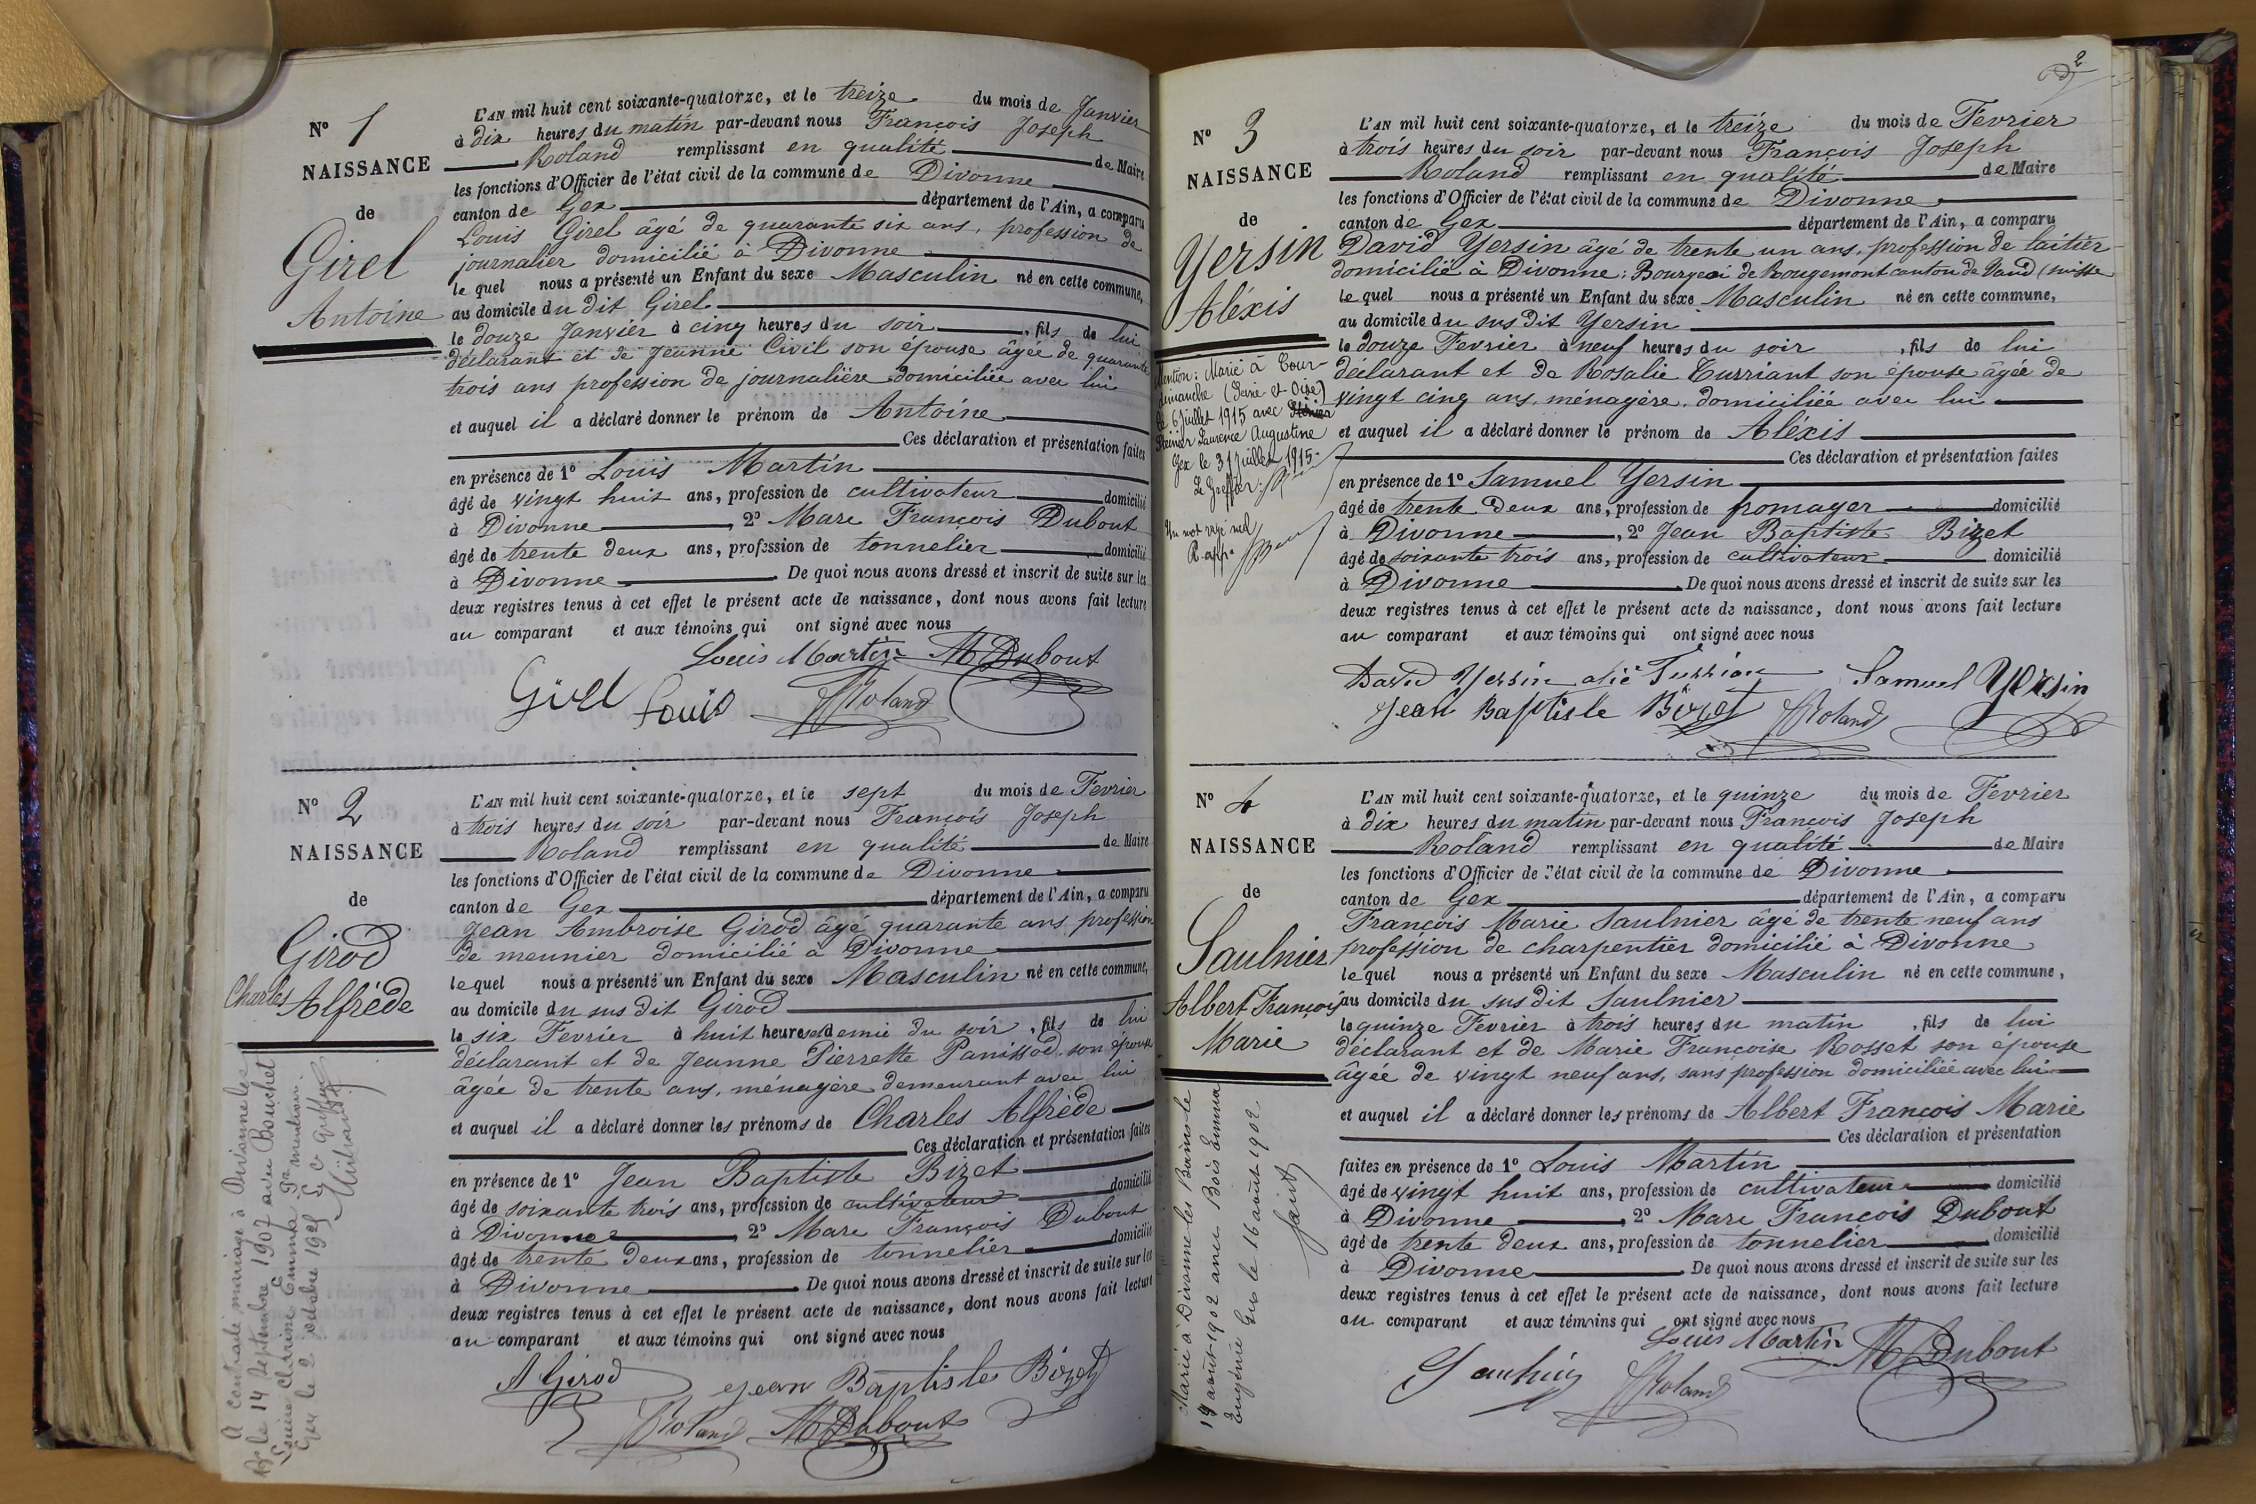 N° 1
NAISSANCE
de
Girel
Antoine
L'AN mil huit cent soixante-quatorze, et le treize du mois de Janvier
à dix heures du matin par-devant nous François Joseph
Roland remplissant en qualité de Maire
les fonctions d'Officier de l'état civil de la commune de Divonne
canton de Gex département de l'Ain, a comparu
Louis Girel âgé de quarante six ans, profession de
journalier domicilié à Divonne
le quel nous a présenté un Enfant du sexe Masculin né en cette commune,
au domicile du dit Girel
le douze Janvier à cinq heures du soir, fils de lui
déclarant et de Jeanne Civil son épouse âgée de quarante
trois ans profession de journalière domiciliée avec lui
et auquel il a déclaré donner le prénom de Antoine
Ces déclaration et présentation faites
en présence de 1° Louis Martin
âgé de vingt huit ans, profession de cultivateur domicilié
à Divonne, 2° Marc François Dubout
âgé de trente deux ans, profession de tonnelier domicilié
à Divonne De quoi nous avons dressé et inscrit de suite sur les
deux registres tenus à cet effet le présent acte de naissance, dont nous avons fait lecture
au comparant et aux témoins qui ont signé avec nous
Louis Martin M Dubout
Girel Louis Roland
N° 2
NAISSANCE
de
Girod
Charles Alfrède
A contracté mariage à Divonne les
Bs le 14 Septembre 1907 avec Bouchet
Louise Clarisse Emma Pr mention.
Gex le 2 octobre 1925 Le Greffier
L'AN mil huit cent soixante-quatorze, et le sept du mois de Fevrier
à trois heures du soir par-devant nous François Joseph
Roland remplissant en qualité de Maire
les fonctions d'Officier de l'état civil de la commune de Divonne
canton de Gex département de l'Ain, a comparu
Jean Ambroise Girod âgé quarante ans profession
de meunier domicilié à Divonne
le quel nous a présenté un Enfant du sexe Masculin né en cette commune,
au domicile du sus dit Girod
le six Fevrier à huit heures et demie du soir, fils de lui
déclarant et de Jeanne Pierrette Panissod, son épouse
âgée de trente ans, ménagère demeurant avec lui
et auquel il a déclaré donner les prénoms de Charles Alfrède
Ces déclaration et présentation faites
en présence de 1° Jean Baptiste Bizet
âgé de soixante trois ans, profession de cultivateur domicilié
à Divonne, 2° Marc François Dubout
âgé de trente deux ans, profession de tonnelier domicilié
à Divonne De quoi nous avons dressé et inscrit de suite sur les
deux registres tenus à cet effet le présent acte de naissance, dont nous avons fait lecture
au comparant et aux témoins qui ont signé avec nous
A Girod Jean Baptiste Bizet
Roland M Dubout
2
N° 3
NAISSANCE
de
Yersin
Aléxis
Mention: Marié à Tour-
demanche (Seine et Oise)
le 6 juillet 1915 avec
Laurence Augustine
Gex le 31 juillet 1915.
Le Greffier:
Un mot rayé nul
L'AN mil huit cent soixante-quatorze, et le treize du mois de Fevrier
à trois heures du soir par-devant nous François Joseph
Roland remplissant en qualité de Maire
les fonctions d'Officier de l'état civil de la commune de Divonne
canton de Gex département de l'Ain, a comparu
David Yersin âgé de trente un ans, profession de laitier
domicilié à Divonne; Bourgeoi de Rougemont canton de Vaud (suisse
le quel nous a présenté un Enfant du sexe Masculin né en cette commune,
au domicile du sus dit Yersin
le douze Fevrier à neuf heures du soir, fils de lui
déclarant et de Rosalie Turriant son épouse âgée de
vingt cinq ans, ménagère, domiciliée avec lui
et auquel il a déclaré donner le prénom de Aléxis
Ces déclaration et présentation faites
en présence de 1° Samuel Yersin
âgé de trente deux ans, profession de fromager domicilié
à Divonne, 2° Jean Baptiste Bizet
âgé de soixante trois ans, profession de cultivateur domicilié
à Divonne De quoi nous avons dressé et inscrit de suite sur les
deux registres tenus à cet effet le présent acte de naissance, dont nous avons fait lecture
au comparant et aux témoins qui ont signé avec nous
David Yersin Samuel Yersin
Jean Baptiste Bizet Roland
N° 4
NAISSANCE
de
Saulnier
Albert François
Marie
Marié à Divonne-les-Bains le
19 août 1902 avec Bois Emma
Eugénie Gex le 16 août 1902
L'AN mil huit cent soixante-quatorze, et le quinze du mois de Fevrier
à dix heures du matin par-devant nous François Joseph
Roland remplissant en qualité de Maire
les fonctions d'Officier de l'état civil de la commune de Divonne
canton de Gex département de l'Ain, a comparu
François Marie Saulnier âgé de trente neuf ans
profession de charpentier domicilié à Divonne
le quel nous a présenté un Enfant du sexe Masculin né en cette commune,
au domicile du sus dit Saulnier
le quinze Fevrier à trois heures du matin, fils de lui
déclarant et de Marie Françoise Rosset son épouse
âgée de vingt neuf ans, sans profession domiciliée avec lui
et auquel il a déclaré donner les prénoms de Albert François Marie
Ces déclaration et présentation
faites en présence de 1° Louis Martin
âgé de vingt huit ans, profession de cultivateur domicilié
à Divonne, 2° Marc François Dubout
âgé de trente deux ans, profession de tonnelier domicilié
à Divonne De quoi nous avons dressé et inscrit de suite sur les
deux registres tenus à cet effet le présent acte de naissance, dont nous avons fait lecture
au comparant et aux témoins qui ont signé avec nous
Louis Martin M Dubout
Saulnier Roland